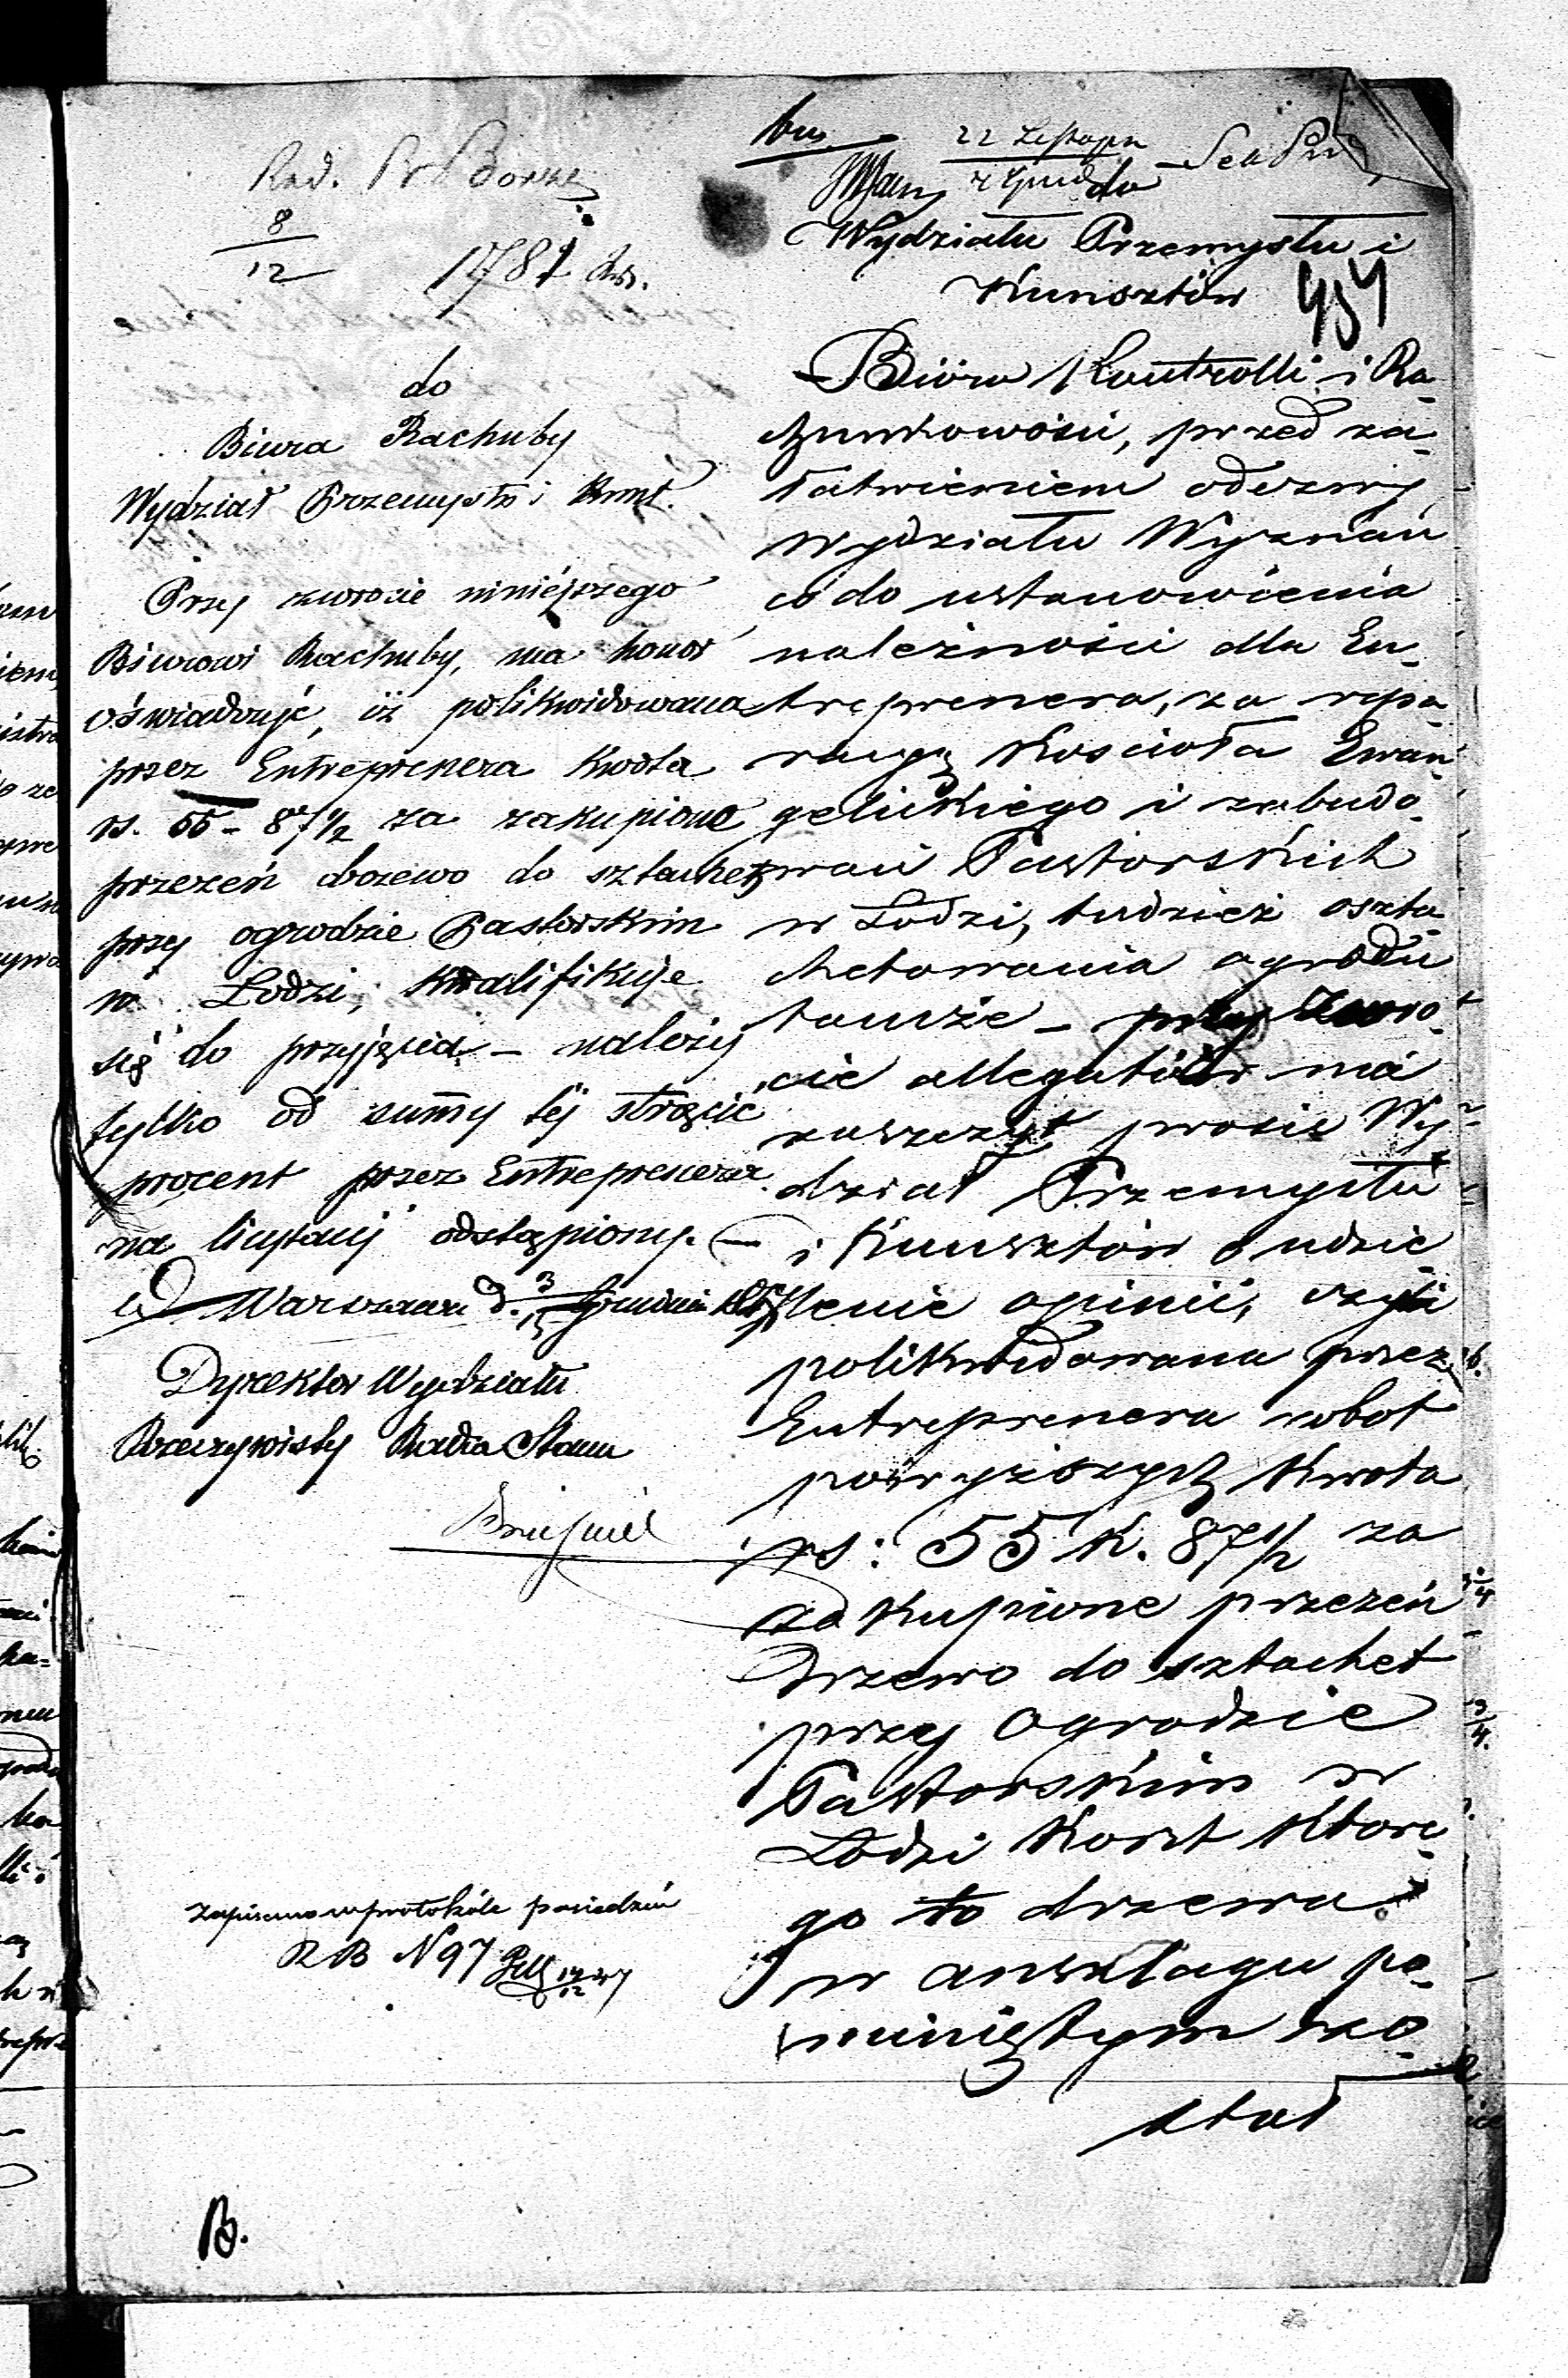 Rad.
8
12
1781

do
Biura Rachuby
Wydział Przemysłu i Kunszt.
Przy zwrocie niniejszego
Biurowi Rachuby, ma honor
oświadczyć, iż polikwidowana
przez Entreprenera kwota
rs. 55 - 87½ za zakupione
przezeń drzewo do sztachet
przy ogrodzie Pastorskim
w Łodzi, kwalifikuje
się do przyjęcia - należy
tylko od summy téj strącić
procent przez Entreprenera
na licytacyi odstąpiony. -
w Warszawie d. 3/15 Grudnia
Dyrektor Wydziału
Rzeczywisty Radca Stanu

Zapisano w protokóle posiedzeń
R B N 97

B.

22 Listopa
4 Grud do
Wydziału Przemysłu i
Kunsztów
Biuro Kontrolli i Ra-
chunkowości, przed za-
łatwieniem odezwy
Wydziału Wyznań
co do ustanowienia
należności dla En-
treprenera, za repa-
racyę Kościoła Ewan-
gelickiego i zabudo-
wań Pastorskich
w Łodzi, tudzież oszta-
chetowania ogrodu
tamże - przy zwro-
cie allegatów ma
zaszczyt prosić Wy-
dział Przemysłu
i Kunsztów o udzie-
lenie opinii, czyli
polikwidowana przez
Entreprenera robot
powyższych kwota
rs: 55 k. 87½ za
zakupione przezeń
Drzewo do sztachet
przy Ogrodzie
Pastorskim w
Łodzi koszt które-
go to drzewa
w anszlagu po-
miniętym zo-
stał